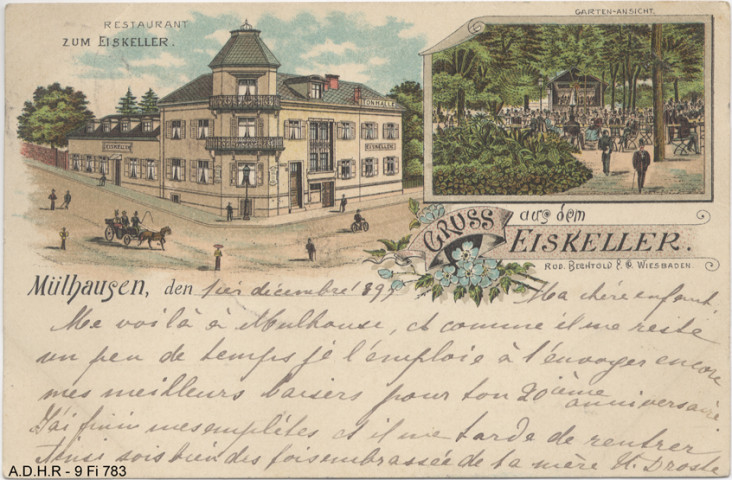 RESTAURANT
ZUM EISKELLER.
GARTEN-ANSICHT.
EISKELLER
WEINHALLE
EISKELLER
GRUSS
aus dem
EISKELLER.
ROD. BECHTOLD & Co. WIESBADEN.
Mülhausen, den 1er décembre 189
Ma chère enfant
Me voilà à Mulhouse, et comme il me reste
un peu de temps je l'emploie à t'envoyer encore
mes meilleurs baisers pour ton 20ième
anniversaire.
J'ai fini mes emplètes et il me tarde de rentrer
Ainsi sois bien des fois embrassée de ta mère H. Droste
A.D.H.R - 9 Fi 783